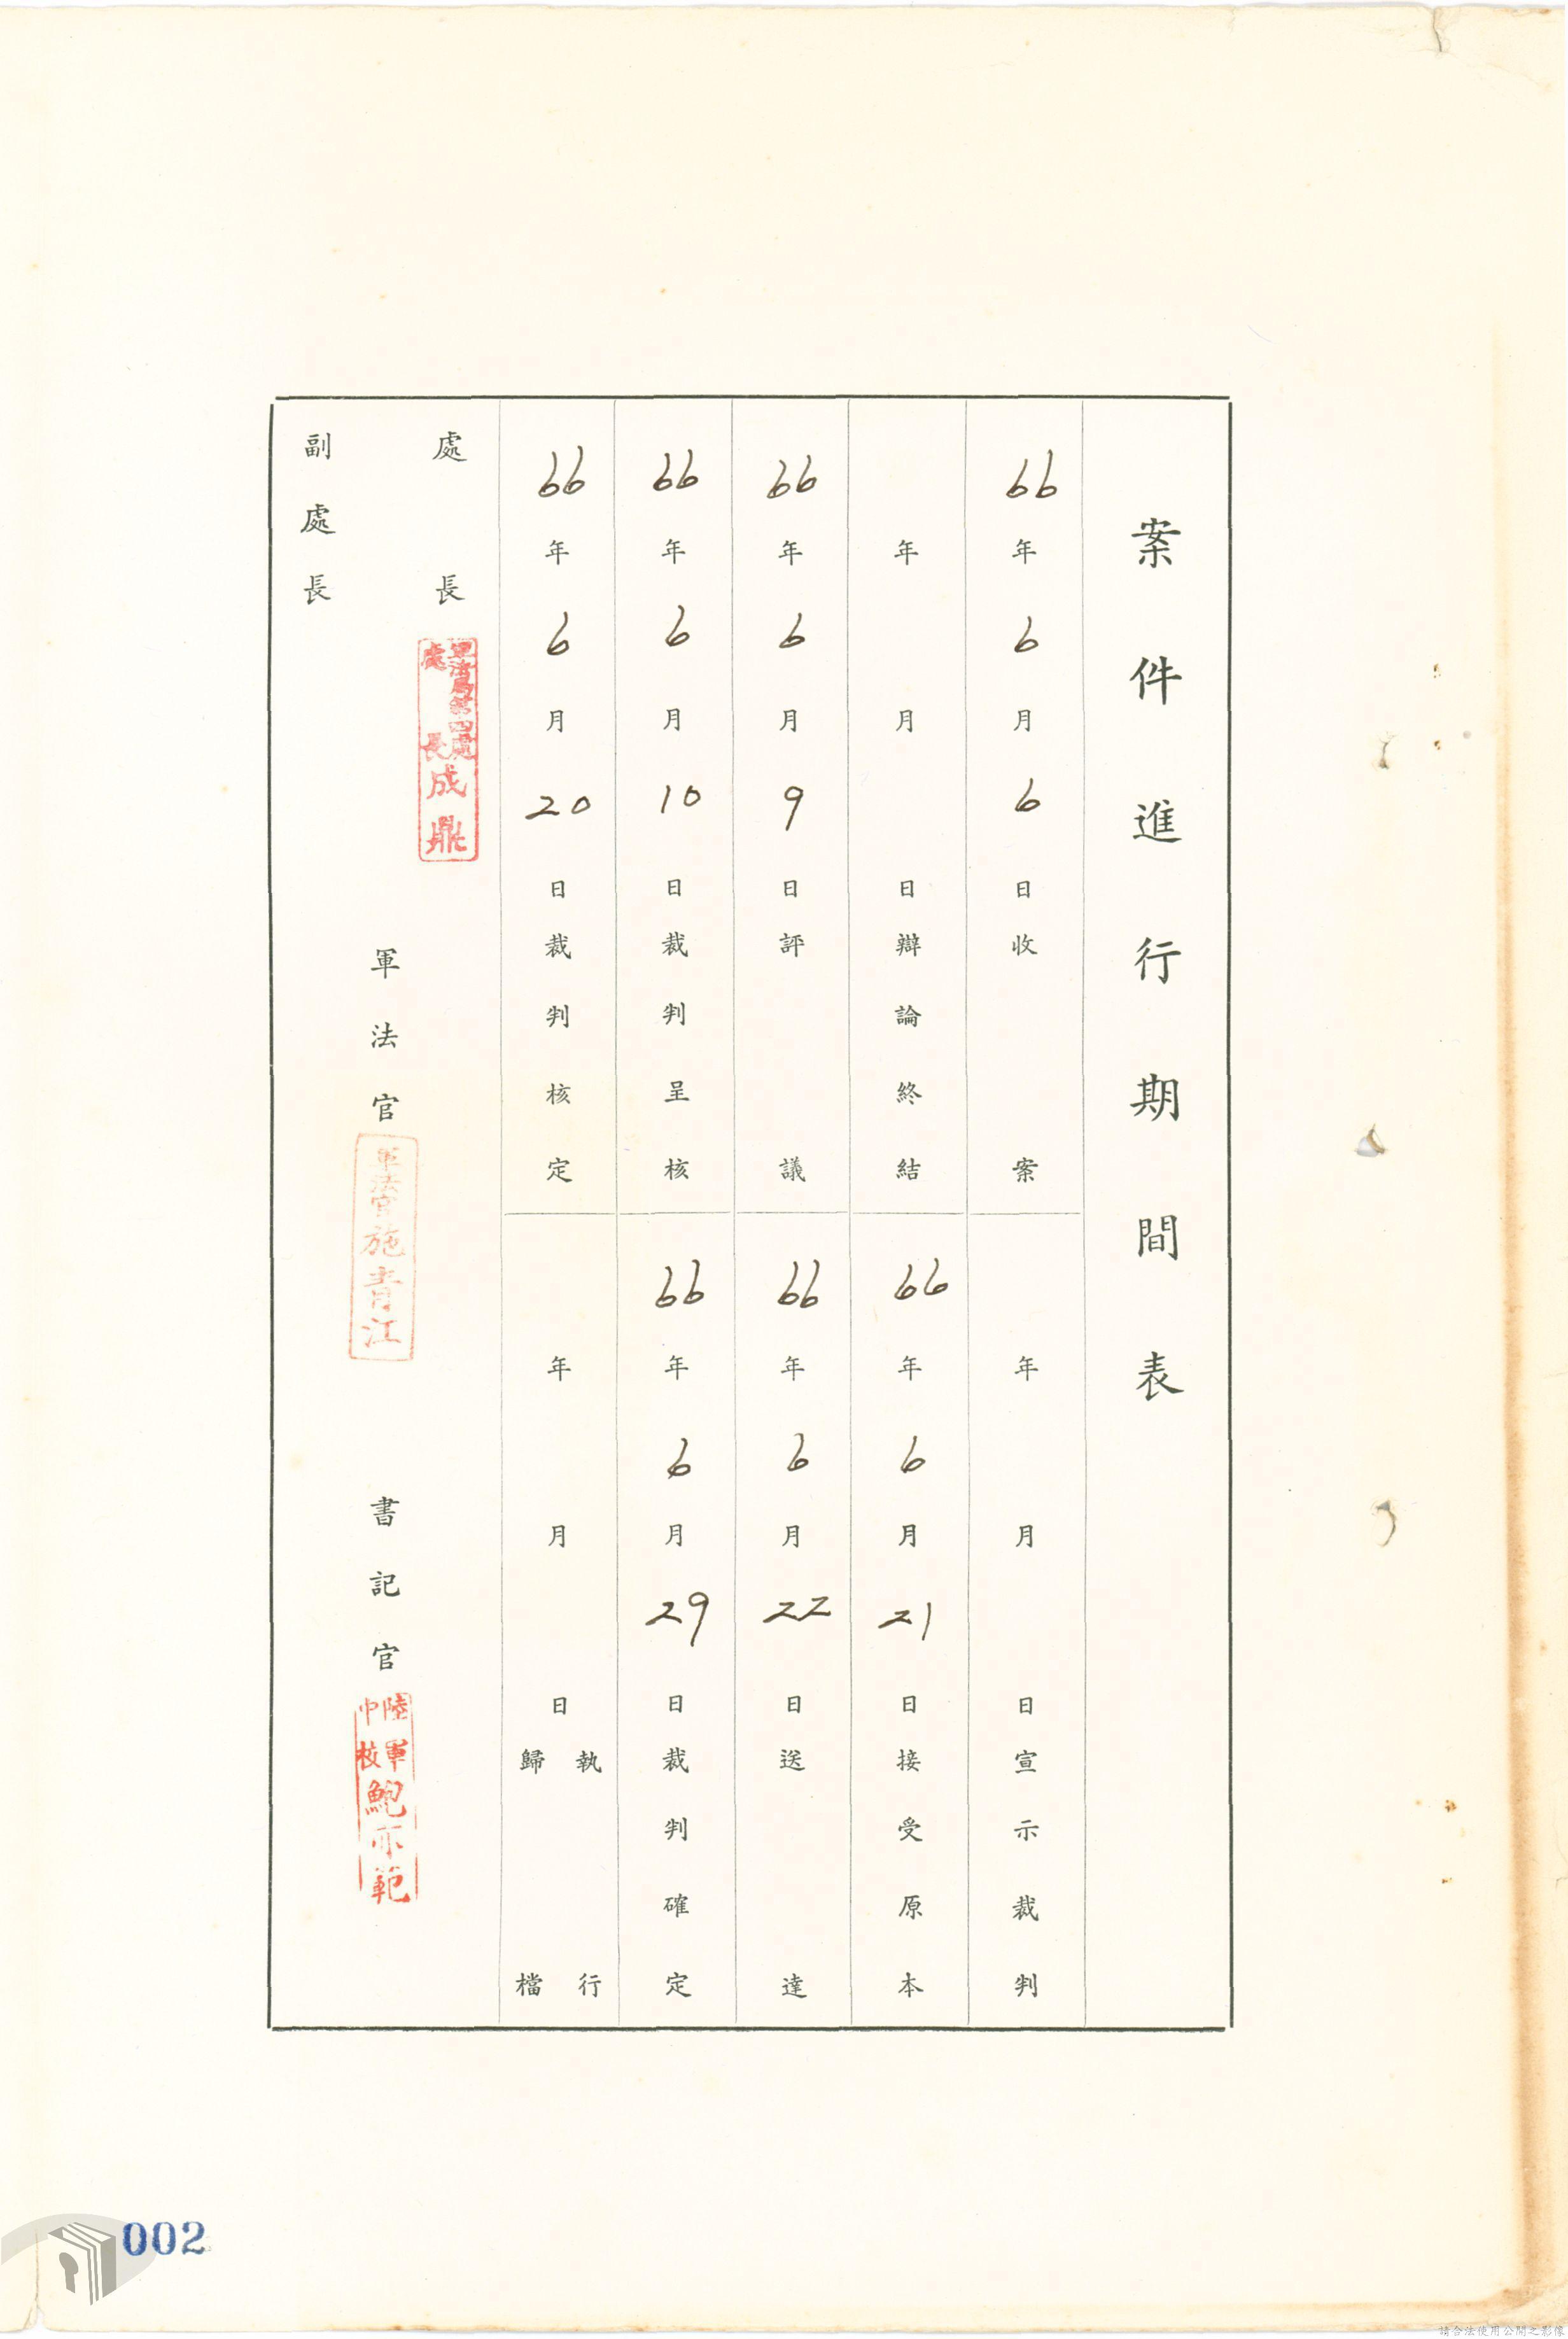 案件進行期間表
66年6月6日收案
年月日宣示裁判
年月日辯論終結
66年6月21日接受原本
66年6月9日評議
66年6月22日送達
66年6月10日裁判呈核
66年6月29日裁判確定
66年6月20日裁判核定
年月日執行歸檔
處長
軍法局第四處處長成鼎
副處長
軍法官
軍法官施青江
書記官
陸軍中校鮑亦範
002
請合法使用公開之影像